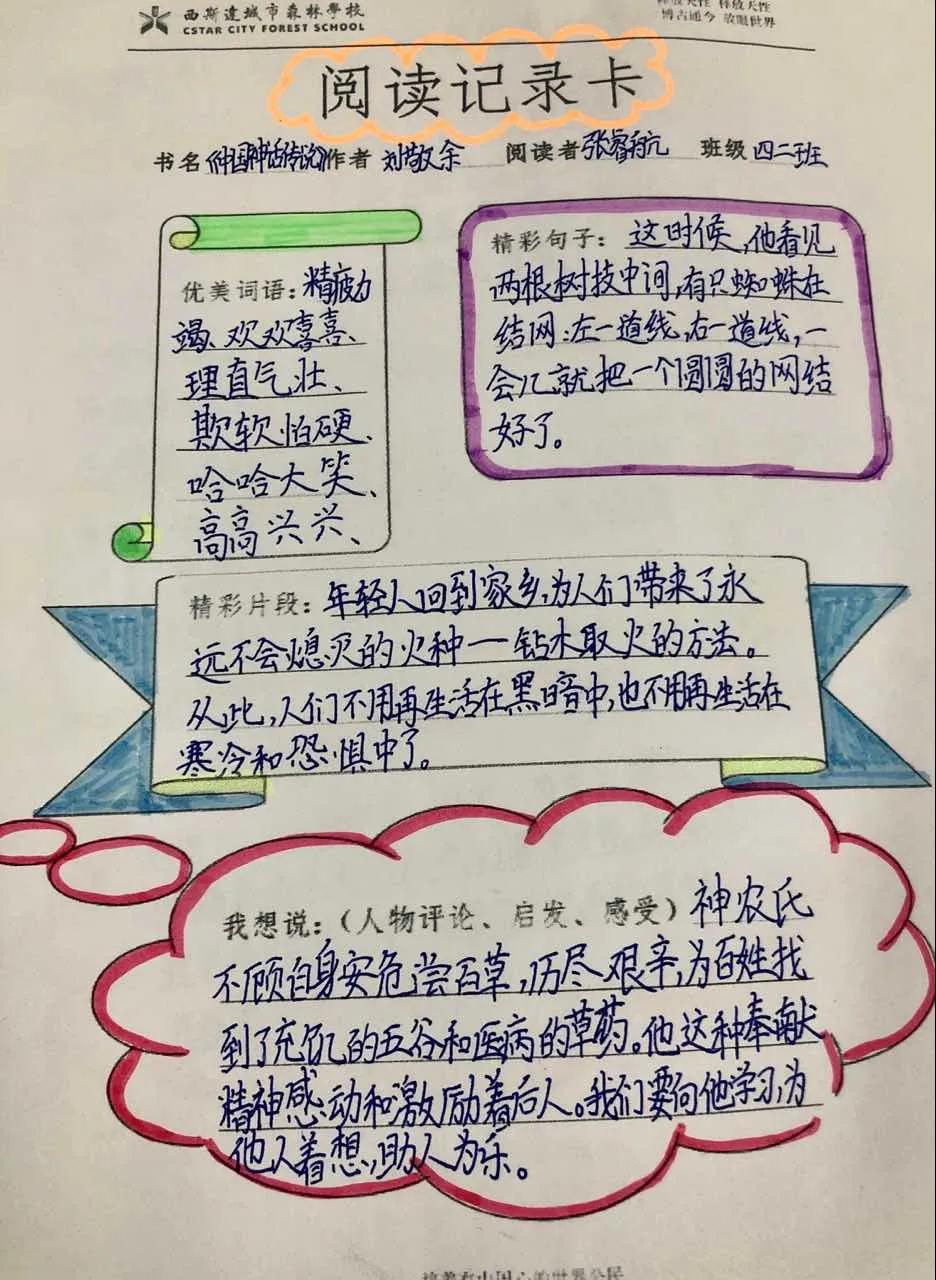 西斯達城市森林學校
CSTAR CITY FOREST SCHOOL
释放天性 释放天性
博古通今 放眼世界
阅读记录卡
书名《中国神话传说》作者 刘敬余 阅读者 张睿航 班级 四二班
优美词语：精疲力
竭、欢欢喜喜、
理直气壮、
欺软怕硬、
哈哈大笑、
高高兴兴、
精彩句子：这时候，他看见
两根树技中间，有只蜘蛛在
结网：左一道线，右一道线，一
会儿就把一个圆圆的网结
好了。
精彩片段：年轻人回到家乡，为人们带来了永
远不会熄灭的火种一钻木取火的方法。
从此，人们不用再生活在黑暗中，也不用再生活在
寒冷和恐惧中了。
我想说：（人物评论、启发、感受）神农氏
不顾自身安危尝百草，历尽艰辛，为百姓找
到了充饥的五谷和医病的草药。他这种奉献
精神感动和激励着后人。我们要向他学习，为
他人着想，助人为乐。